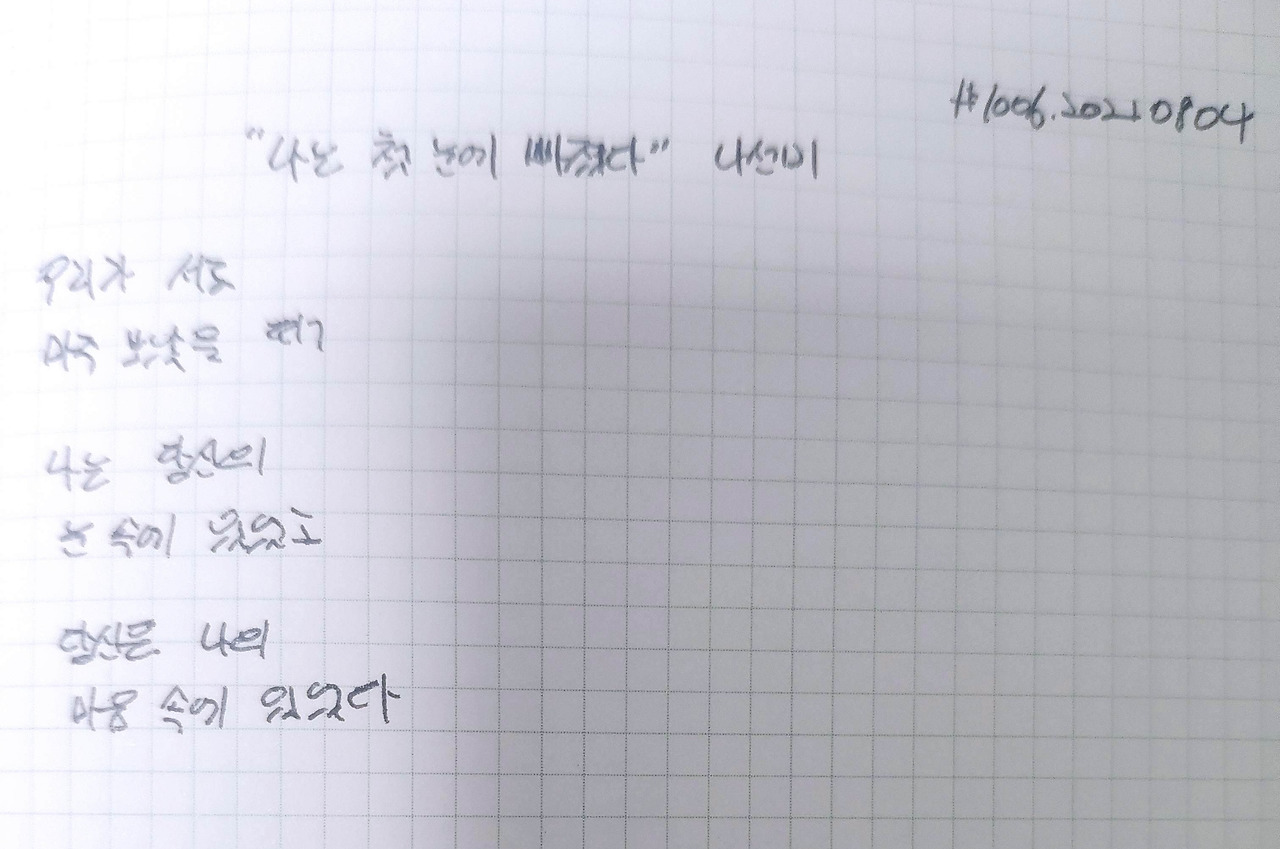 #1006.20210804
"나는 첫 눈에 빠졌다" 나선미
우리가 서로
마주 보았을 때
나는 당신의
눈 속에 있었고
당신은 나의
마음 속에 있었다